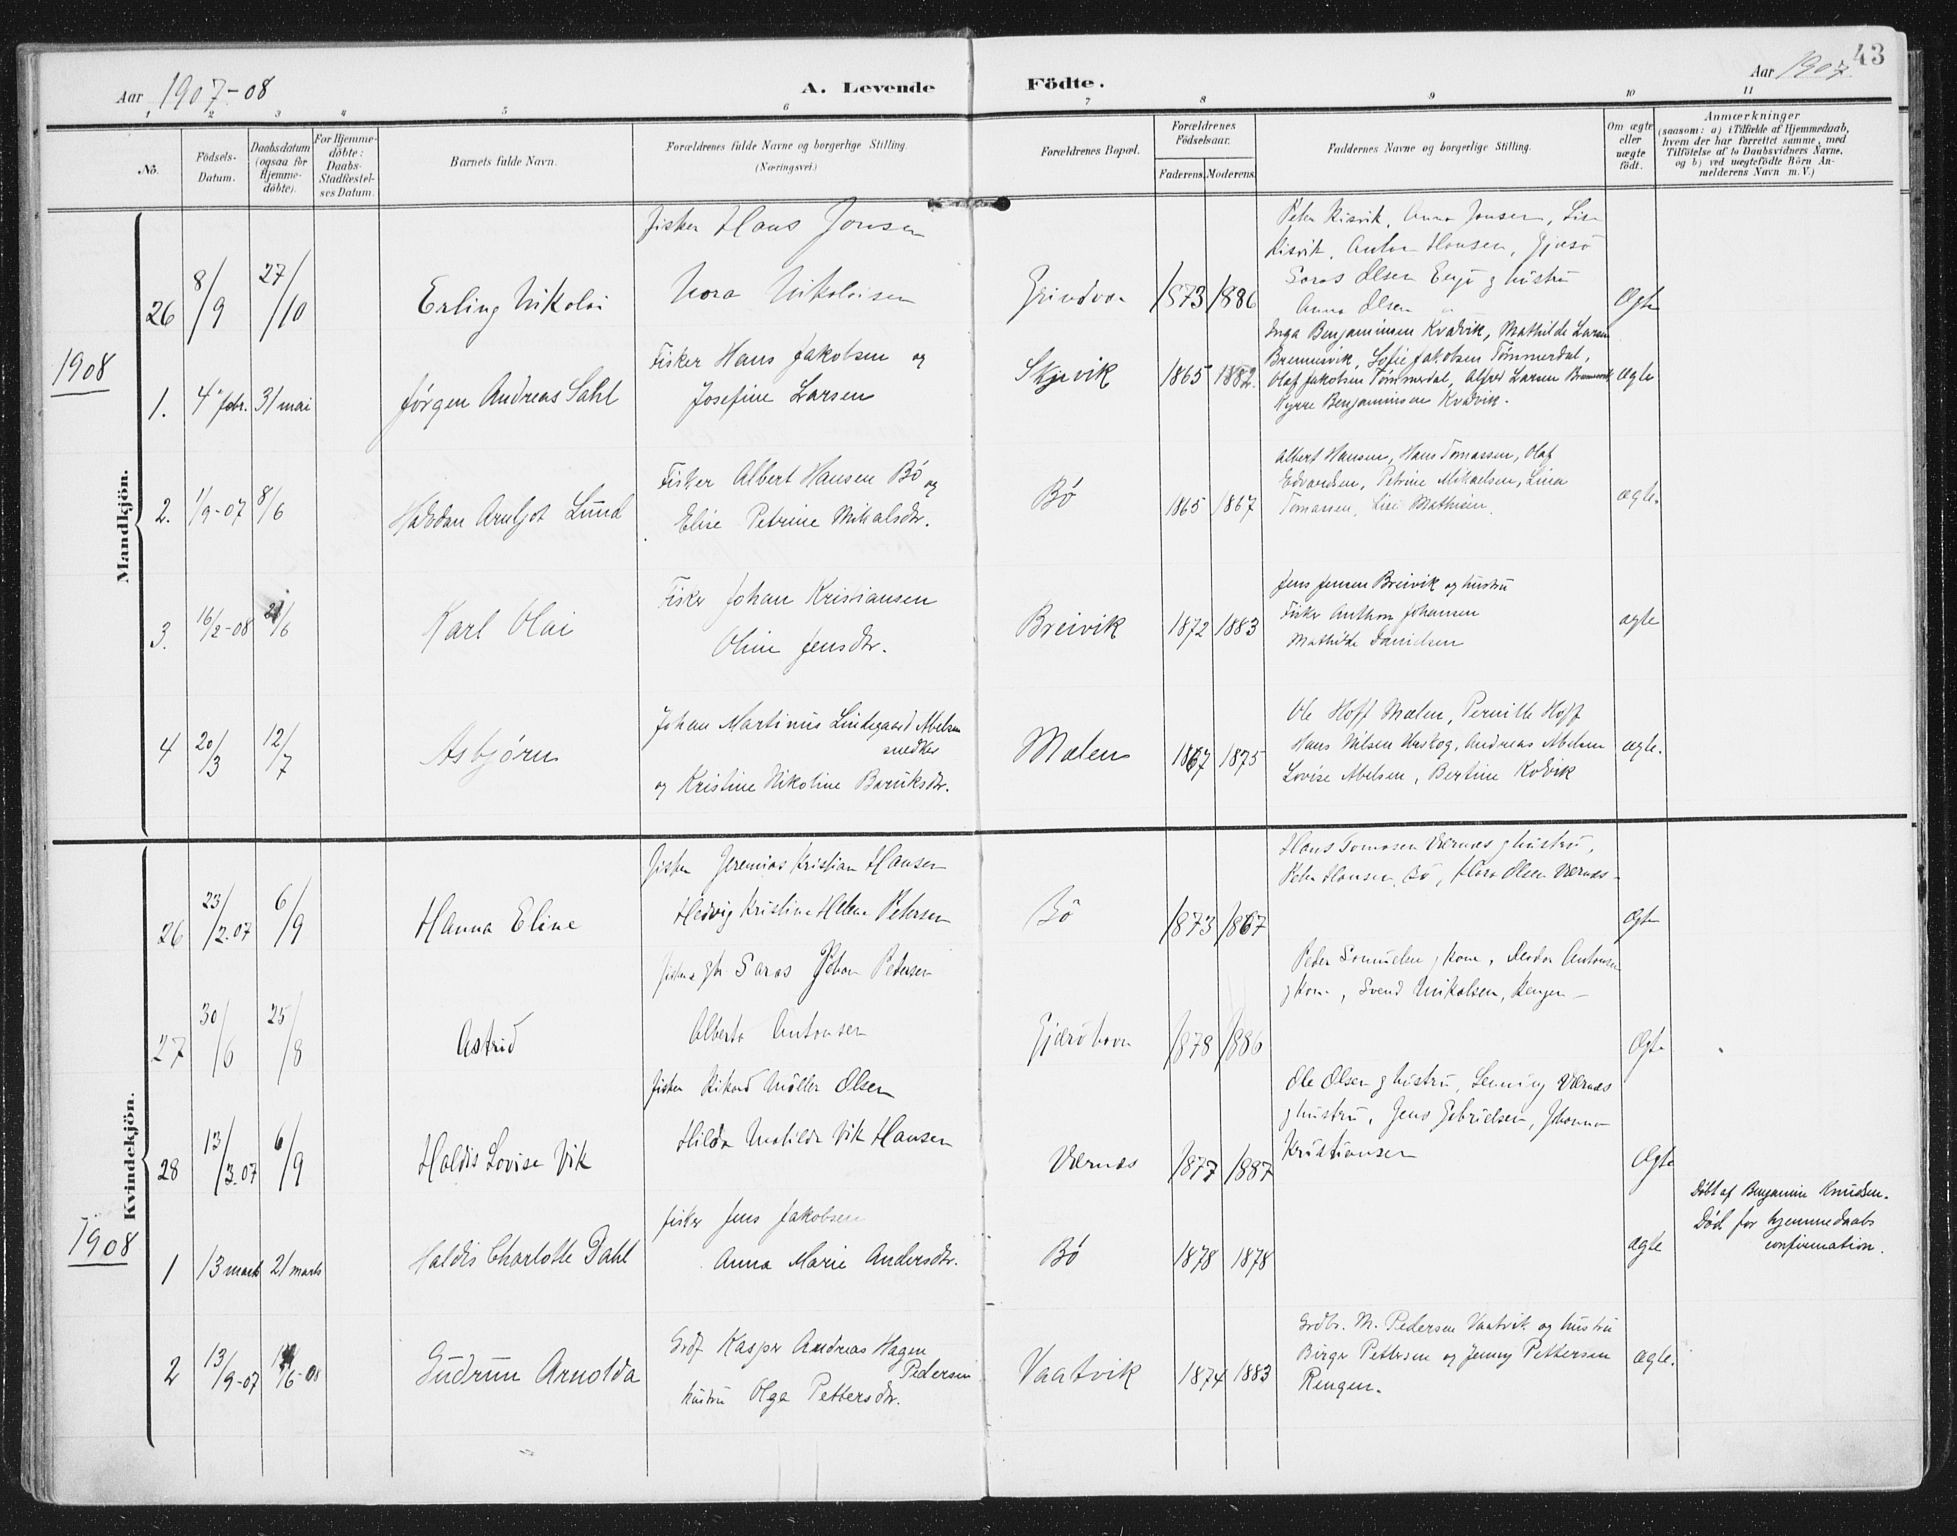 43
Aar 1907-08
A. Levende Födte.
Aar 1907
1 2 3 4 5 6 7 8 9 10 11
No.
Födsels-
Datum.
Daabsdatum
(ogsaa for
Hjemme-
döbte).
For Hjemme-
döbte:
Daabs-
Stadfæstel-
ses Datum.
Barnets fulde Navn.
Forældrenes fulde Navne og borgerlige Stilling.
(Næringsvei.)
Forældrenes Bopæl.
Forældrenes
Födselsaar.
Faderens. Moderens.
Faddernes Navne og borgerlige Stilling.
Om ægte
eller
uægte
født.
Anmærkninger
(saasom: a) i Tilfælde af Hjemmedaab,
hvem der har forrettet samme, med
Tilföielse af to Daabsvidners Navne.
og b) ved uægtefödte Börn An-
melderens Navn m. V.)
Mandkjön.
26 8/9 27/10 Erling Nikolai
Fisker Hans Jonsen
Nora Nikolaisen
1873 1886
Peter Risvik, Anna Jonsen, Lise
Risvik, Anton Hansen, Gjæsö
Olsen hustru
Anna Olsen
Ægte
1908
1. 4 febr. 31 mai Jørgen Andreas Sahl
Fisker Hans Jakobsen og
Josefine Larsen
Skjevik 1865 1882.
Inga Benjaminsen Kvalvik, Mathilde Larsen
Brennesvik, Sofie Jakobsen Tømmerdal,
Olaf Jakobsen Tømmerdal, Alfred Larsen
Kyrre Benjaminsen Kvalvik.
ægte
2. 1/9-07 8/6 Halvdan Arnljot Lund
Fisker Albert Hansen Bö og
Elise Petrine Mikalsdtr.
Bö 1865 1867
Albert Hansen, Hans Tomassen, Olaf
Edvardsen, Petrine Mikaelsen, Lina
Tomassen, Lise Mathisen.
ægte.
3. 16/2-08 21/6 Karl Olai
Fisker Johan Kristiansen
Oline Jensdtr.
Breivik 1872 1883
Jens Jensen Breivik og hustru
Fisker Anthon Johansen
Mathilde Danielsen
ægte
4 20/3 12/7 Asbjørn
Johan Martinus Lindegaard Abelsen
snedker
og Kristine Nikoline Baruksdtr.
Mælen 1867 1875
Ole Hoff Mælen, Pernille Hoff
Hans Nilsen Urskog, Andreas Abelsen
Lovise Abelsen, Bertine Kvalvik
ægte.
Kvindekjön.
26 23/2.07 6/9 Hanna Eline
Fisker Jeremias Kristian Hansen
Hedvig Kristine Helene Petersen
Bö 1873 1867
Hans Tomasen Værnes g hustru,
Peter Hansen, Bö, Olsen Værnes
Ægte
27 30/6 25/8 Astrid
Johan Pedersen
Alberta Antonsen
1878 1886
Peder Samuelsen g kone, Antonsen
g kone, Svend Mikalsen, Rengen
Ægte
28 13/3.07 6/9 Haldis Lovise Vik
Fisker Rikard Möller Olsen
Hilda Matilda Vik Hansen
Værnes 1877 1887
Ole Olsen g hustru, Værnes
g hustru, Jens Gabrielsen, Johanna
Kristiansen
Ægte
1908
1 13 marts 21 marts Haldis Charlotte Dahl
fisker Jens Jakobsen
Anna Marie Andersdtr.
Bö 1878 1878
ægte
Döbt af Benjamin Knudsen.
Död for hjemmedaabs
confirmation.
2 13/9-07 14/6-08 Gudrun Arnolda
Kasper Andreas Hagen
Pedersen
hustru Olga Pettersdtr.
Vaatvik 1874 1883
Grdbr. M. Pedersen Vaatvik og hustru
Birger Pettersen og Jenny Pettersen
Rengen.
ægte.